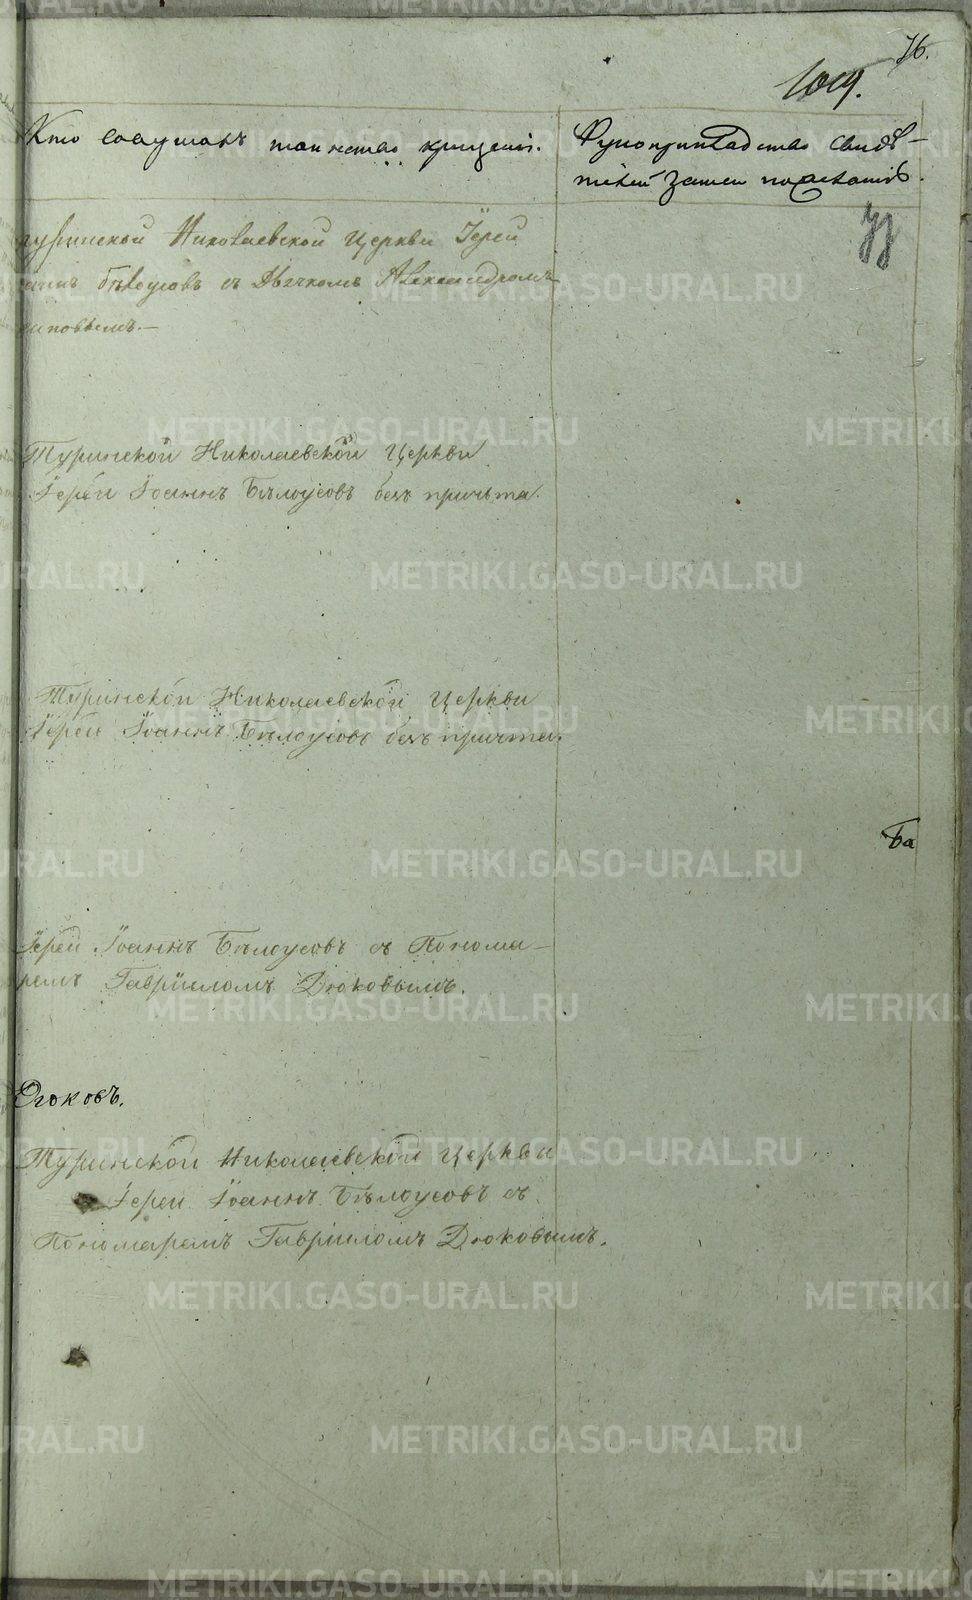 76.
1019.
Кто совершалъ таинство крещенія.
Рукоприкладство свидѣ-
телей записи по желанію.
77
Туринской Николаевской Церкви Іерей
Бѣлоусовъ съ Дьячкомъ Александромъ
иповымъ.—
Туринской Николаевской Церкви
Іерей Іоаннъ Бѣлоусовъ безъ причта.
Туринской Николаевской Церкви
Іерей Іоаннъ Бѣлоусовъ безъ причта.
Ба
Іерей Іоаннъ Бѣлоусовъ съ Понома-
ремъ Гавріиломъ Дюковымъ.
Дюковъ.
Туринской Николаевской Церкви
Іерей Іоаннъ Бѣлоусовъ съ
Пономаремъ Гавріиломъ Дюковымъ.
METRIKI.GASO-URAL.RU